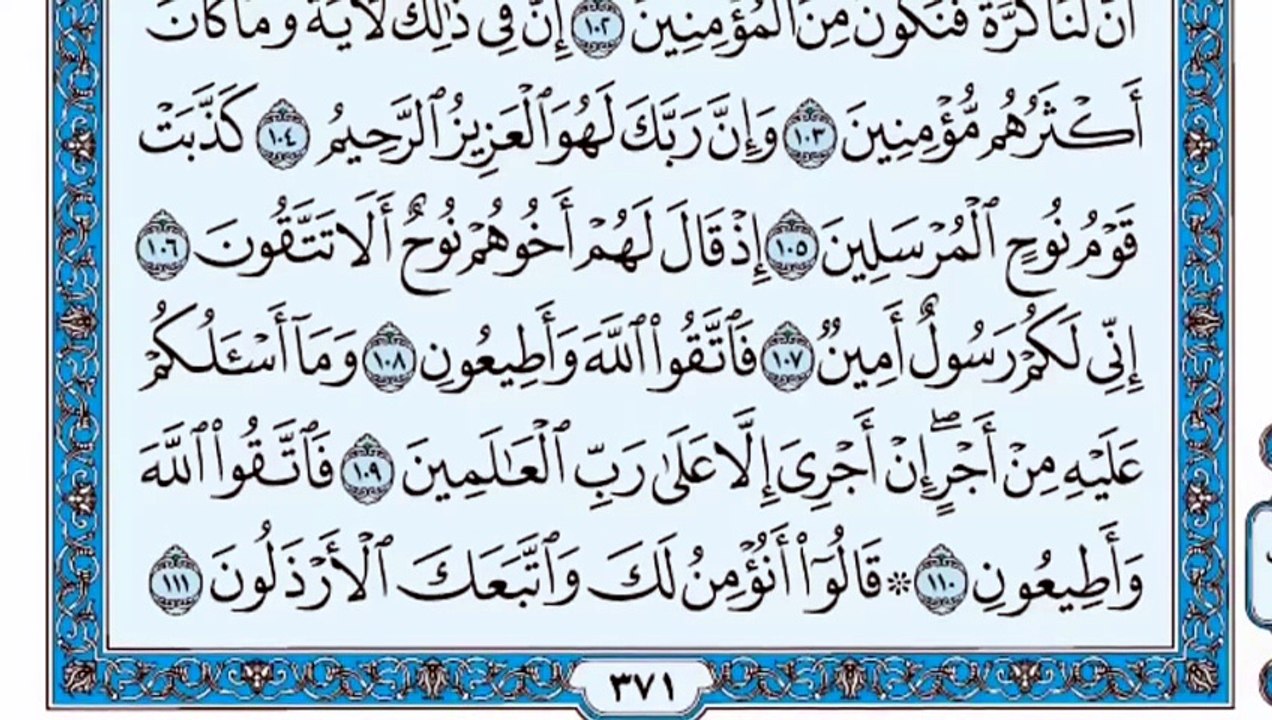 أَنَّ لَنَا كَرَّةً فَنَكُونَ مِنَ الْمُؤْمِنِينَ ١٠٢ إِنَّ فِي ذَٰلِكَ لَآيَةً وَمَا كَانَ
أَكْثَرُهُم مُّؤْمِنِينَ ١٠٣ وَإِنَّ رَبَّكَ لَهُوَ ٱلْعَزِيزُ ٱلرَّحِيمُ ١٠٤ كَذَّبَتْ
قَوْمُ نُوحٍ ٱلْمُرْسَلِينَ ١٠٥ إِذْ قَالَ لَهُمْ أَخُوهُمْ نُوحٌ أَلَا تَتَّقُونَ ١٠٦
إِنِّى لَكُمْ رَسُولٌ أَمِينٌ ١٠٧ فَٱتَّقُوا۟ ٱللَّهَ وَأَطِيعُونِ ١٠٨ وَمَآ أَسْـَٔلُكُمْ
عَلَيْهِ مِنْ أَجْرٍ ۖ إِنْ أَجْرِىَ إِلَّا عَلَىٰ رَبِّ ٱلْعَٰلَمِينَ ١٠٩ فَٱتَّقُوا۟ ٱللَّهَ
وَأَطِيعُونِ ١١٠ ۞ قَالُوٓا۟ أَنُؤْمِنُ لَكَ وَٱتَّبَعَكَ ٱلْأَرْذَلُونَ ١١١
٣٧١